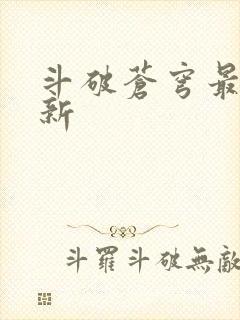 斗破蒼穹最
新
斗羅斗破無敵